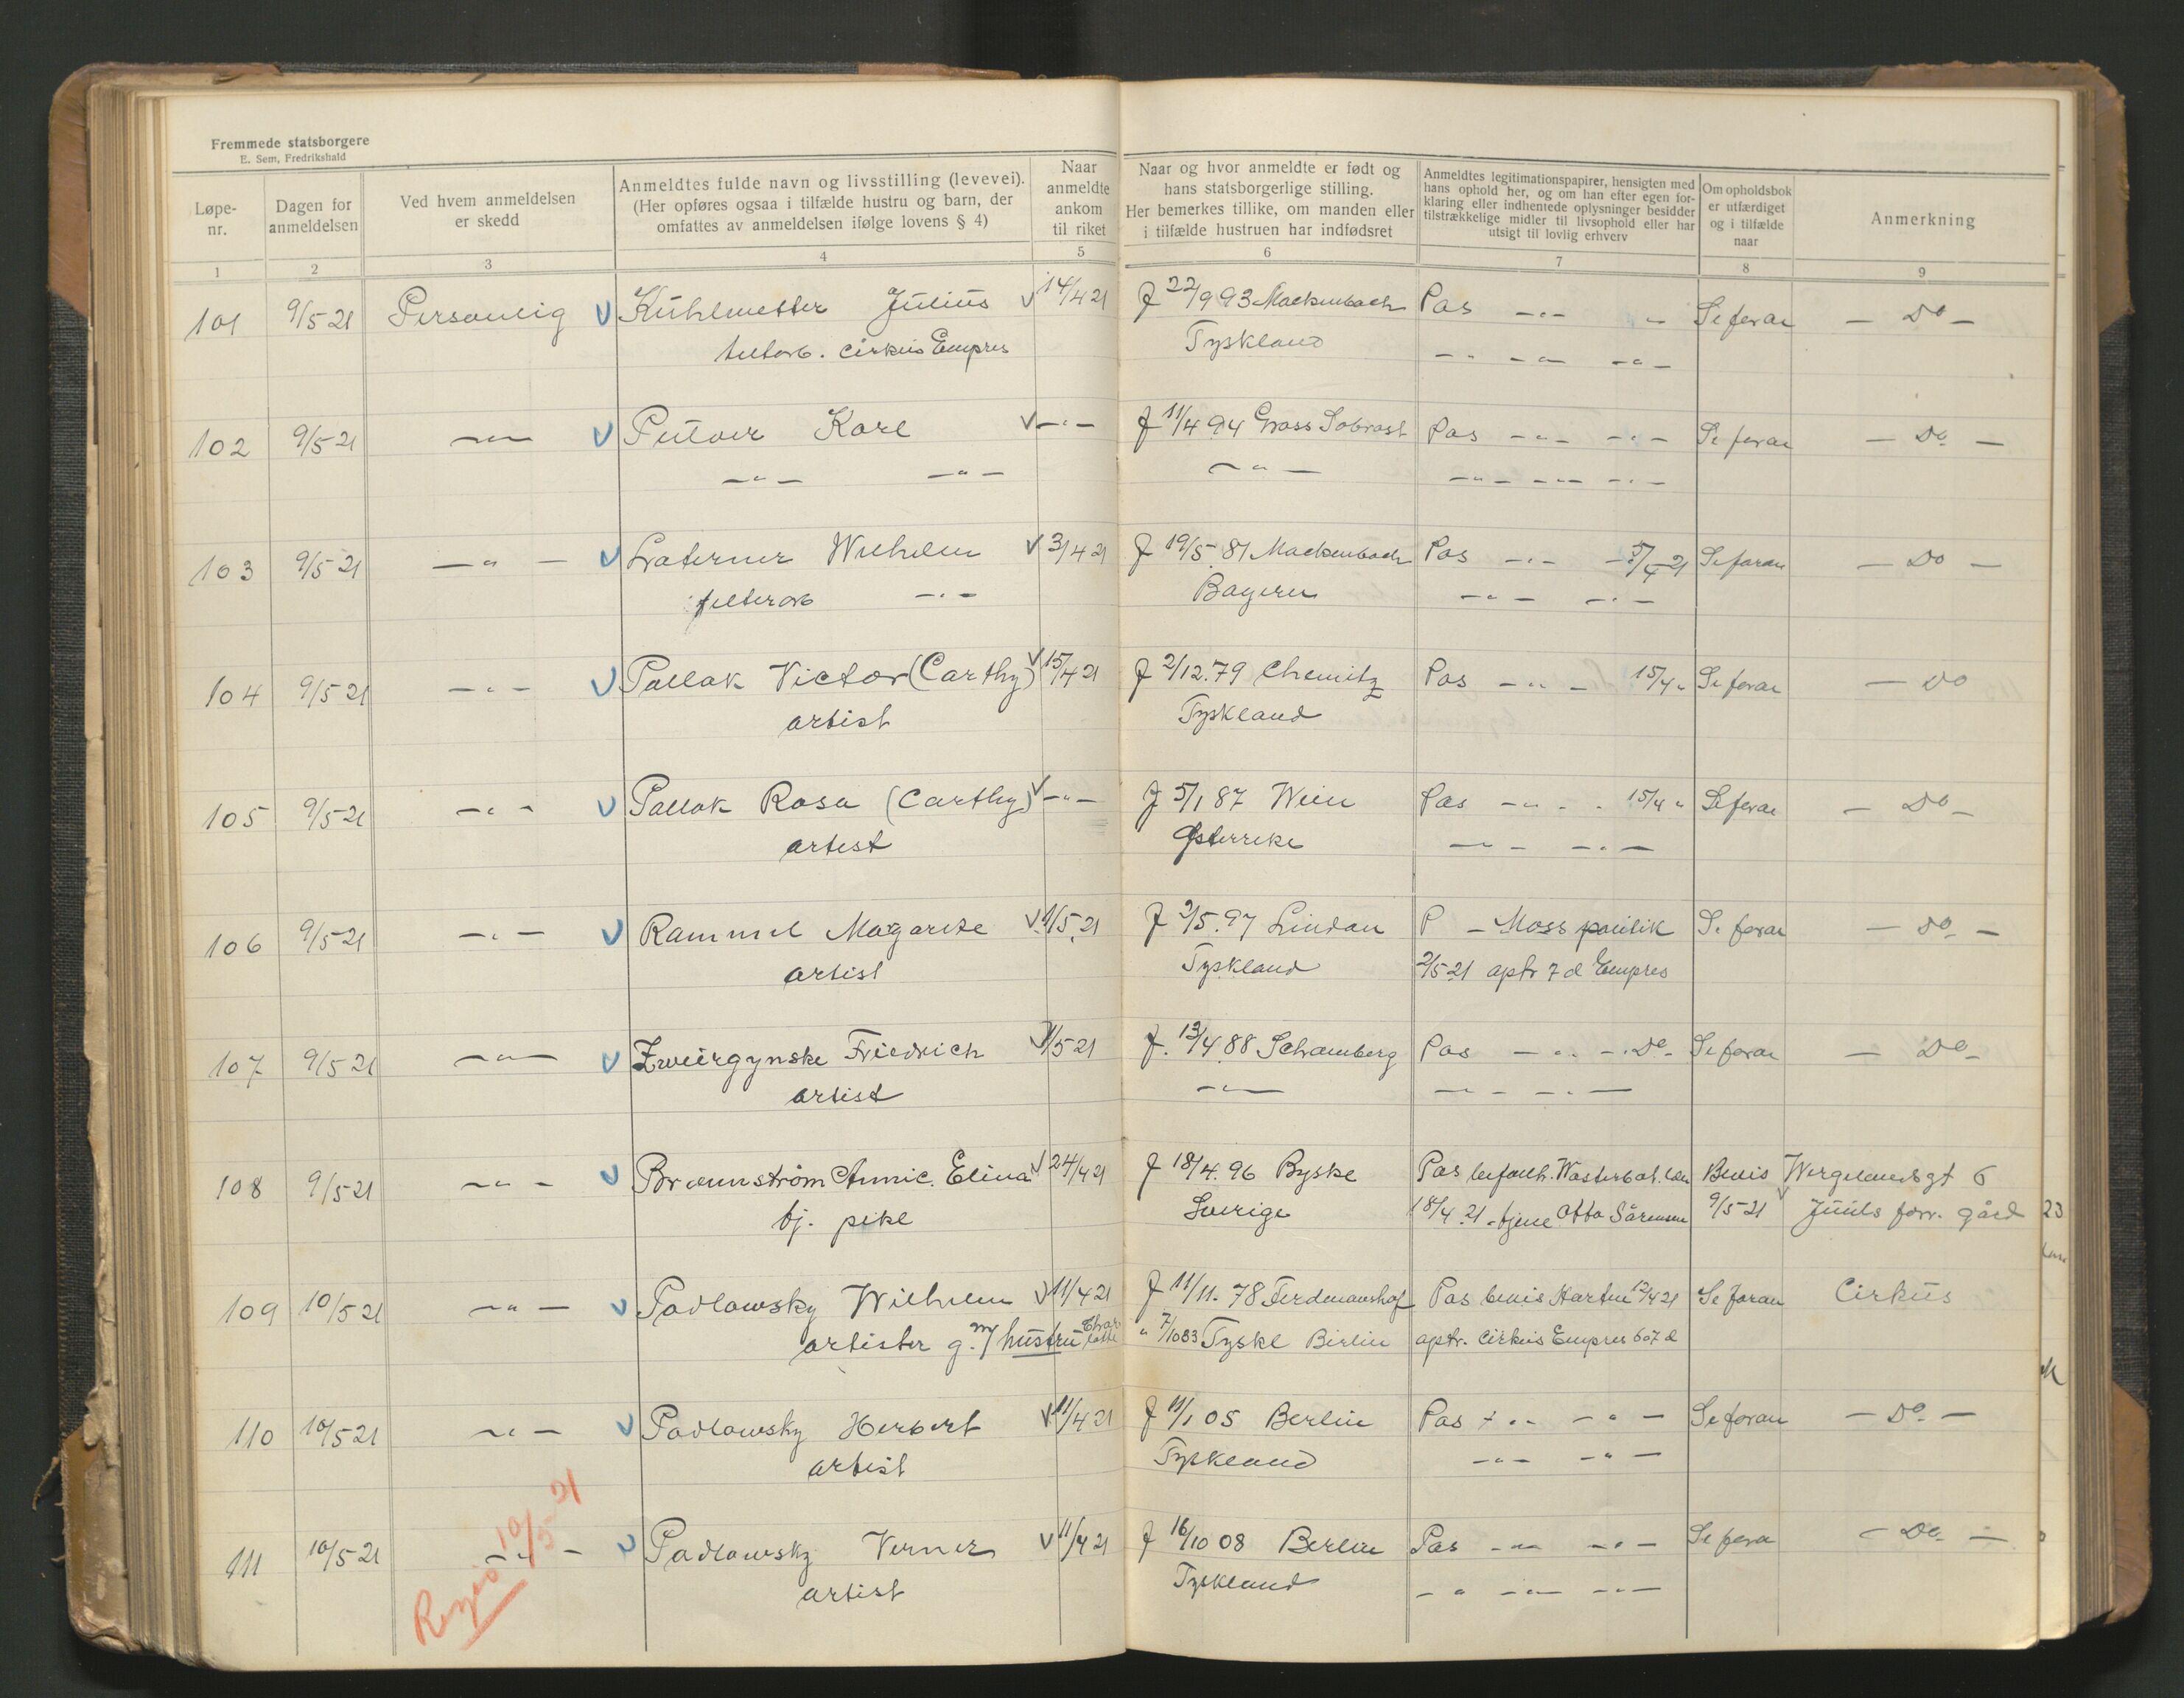 Fremmede statsborgere
E. Sem, Fredrikshald
Løpe-nr.
Dagen for anmeldelsen
Ved hvem anmeldelsen er skedd
Anmeldtes fulde navn og livsstilling (levevei).
(Her opføres ogsaa i tilfælde hustru og barn, der
omfattes av anmeldelsen ifølge lovens § 4)
Naar anmeldte ankom til riket
Naar og hvor anmeldte er født og
hans statsborgerlige stilling.
Her bemerkes tillike, om manden eller
i tilfælde hustruen har indfødsret
Anmeldtes legitimationspapirer, hensigten med
hans ophold her, og om han efter egen for-
klaring eller indhentede oplysninger besidder
tilstrækkelige midler til livsophold eller har
utsigt til lovlig erhverv
Om opholdsbok
er utfærdiget
og i tilfælde
naar
Anmerkning
1 2 3 4 5 6 7 8 9
101 9/5 21 Personlig Kühlmetter Julius 14/4 21 f 22/9 93 Mackenbach Pas -"- " Se foran - Do -
teltarb. Cirkus Empres Tyskland -"- -"- -"-
102 9/5 21 -"- Karl -"- f 11/4 94 Gross Pas -"- -"- Se foran - Do -
-"- -"- -"- -"- -"- -"-
103 9/5 21 -"- Laterner Wilhelm 3/4 21 f 19/5 81 Mackenbach Pas -"- 5/4 21 Se foran - Do -
teltarb -"- Bayern -"- -"-
104 9/5 21 -"- Pallak Victor (Carthy) 15/4 21 f 2/12.79 Chemitz Pas -"- 15/4 " Se foran - Do
artist Tyskland
105 9/5 21 -"- Pallak Rosa (Carthy) -"- f 5/1 87 Wein Pas -"- 15/4 " Se foran - Do -
artist Østerrike -"- -"-
106 9/5 21 -"- Rammel Magarete 1/5 21 f 2/5.97 Lindau P - Moss politik Se foran - Do -
artist Tyskland 2/5 21 aptr 7 d Empres
107 9/5 21 -"- Zweirgynske Friedrich 1/5 21 f. 13/4 88 Schamberg Pas -"- Do - Se foran - Do -
artist -"- -"- -"-
108 9/5 21 -"- Brännström Annie Elina 24/4 21 f 18/4.96 Byske Pas Bevis Wergelandsgt 6
tj. pike Sverige 18/4.21 - tjene Otto Sörensen 9/5-21 Juuls forr. gård 23
109 10/5 21 -"- Podlowsky Wilhelm 11/4 21 f 11/11.78 Ferdenanshof Pas bevis 12/4 21 Se foran Cirkus
artister g. m/ hustru Charlotte " 7/10 83 Tyske Birlin aptr. Cirkus Empres 6 a 7 d
110 10/5 21 -"- Podlowsky Herbert 11/4 21 f 11/1 05 Berlin Pas -"- -"- Se foran - Do -
artist Tyskland -"- -"-
111 10/5 21 -"- Podlowsky Verner 11/4 21 f 16/10 08 Berlin Pas -"- -"- Se fora - Do -
artist Tyskland -"- -"- -"-
10/5 21